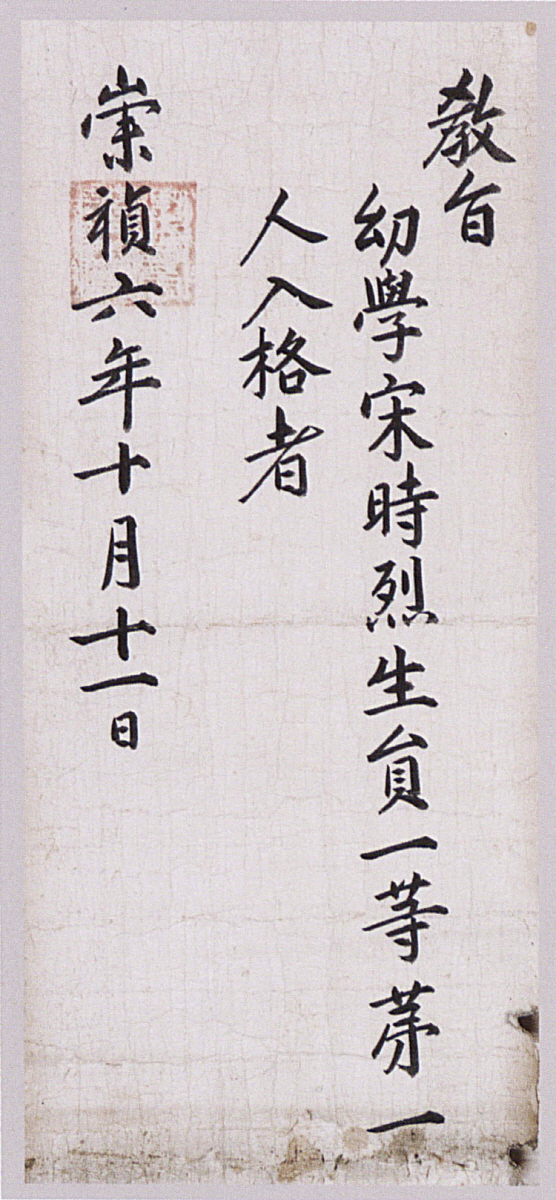 教旨
幼學宋時烈生員一等第一
人入格者
崇禎六年十月十一日